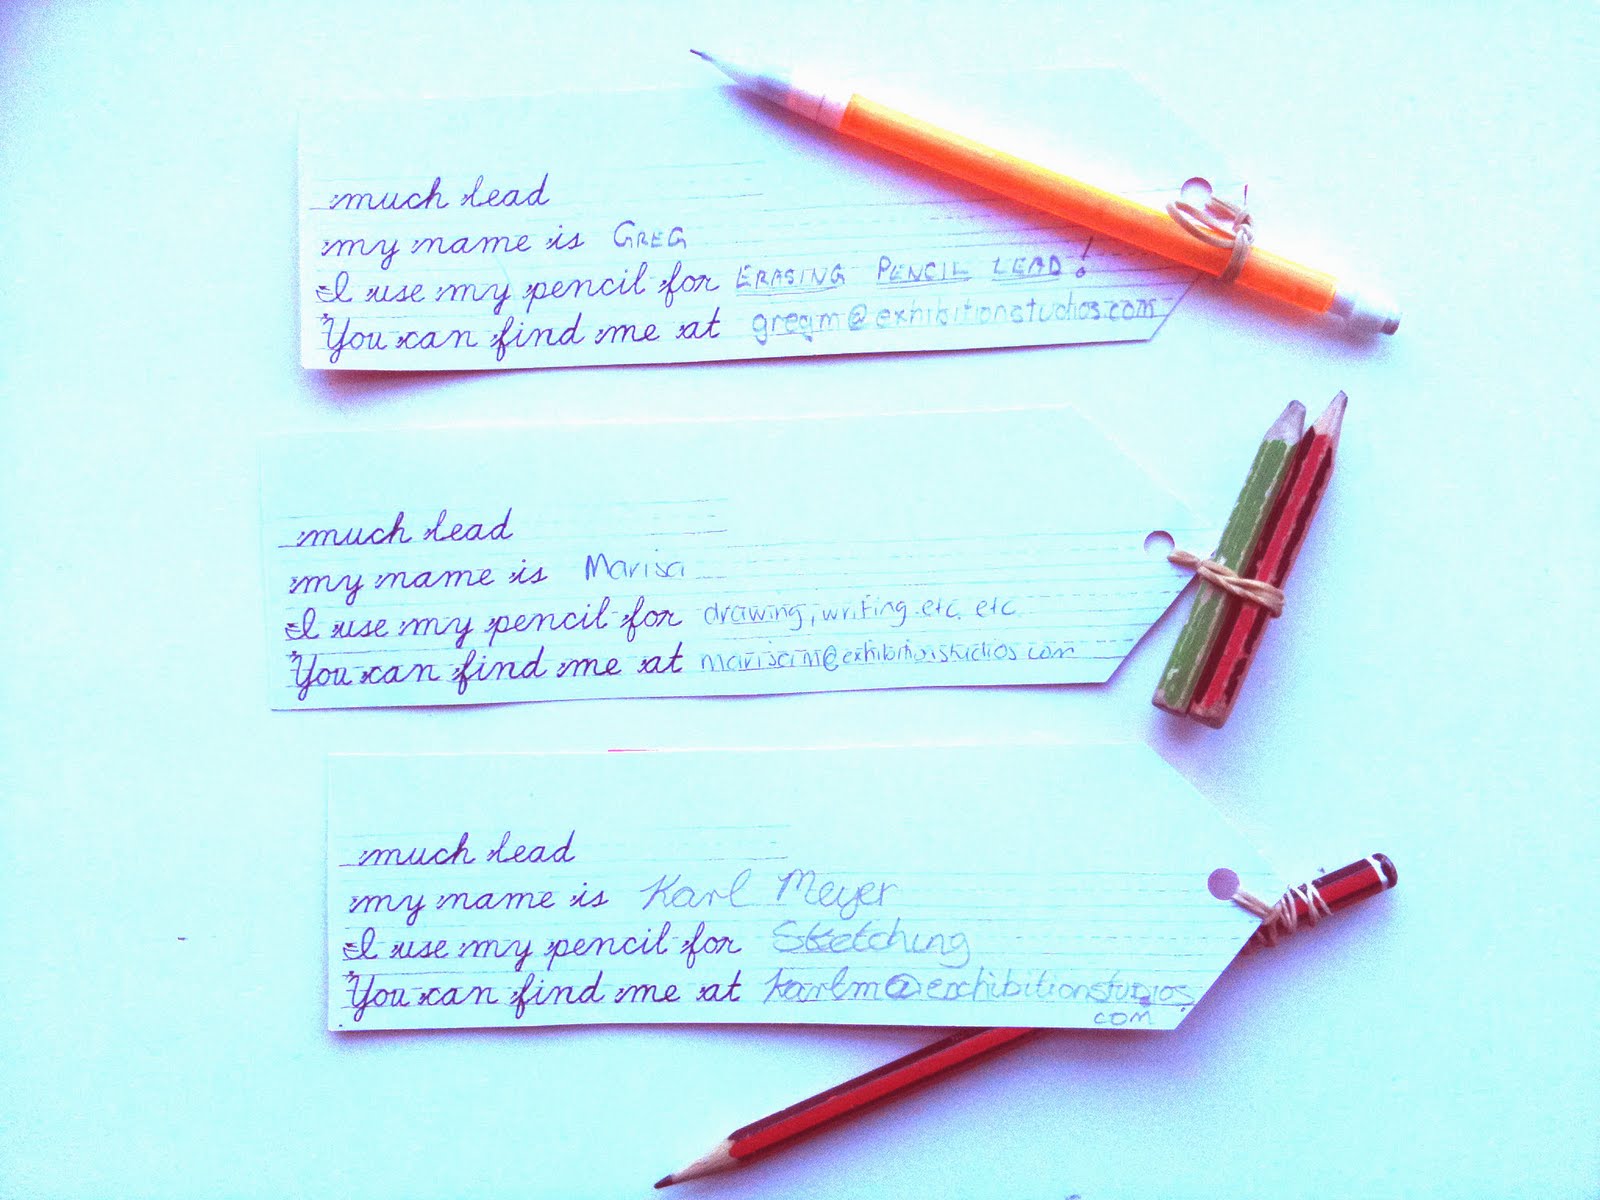 much lead
my name is GREG
I use my pencil for ERASING PENCIL LEAD!
You can find me at gregm@exhibitionstudios.com
much lead
my name is Marisa
I use my pencil for drawing, writing etc. etc
You can find me at marisam@exhibitionstudios.com
much lead
my name is Karl Meyer
I use my pencil for Sketching
You can find me at karlm@exhibitionstudios.
com